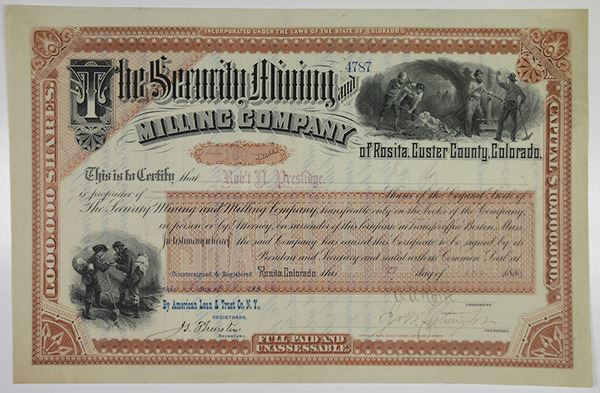 INCORPORATED UNDER THE LAWS OF THE STATE OF COLORADO
4787
The Security Mining and
MILLING COMPANY
of Rosita, Custer County, Colorado.
1,000,000 SHARES.
CAPITAL $10,000,000.
This is to Certify that Rob't N. Prestidge.
is proprietor of Shares of the Capital Stock of
The Security Mining and Milling Company, transferable only on the books of the Company,
in person or by Attorney, on surrender of this Certificate at Transfer office Boston, Mass.
In testimony whereof the said Company has caused this Certificate to be signed by its
President and Secretary and sealed with its Common Seal at
Countersigned & Registered
Rosita, Colorado. this 27 day of
this day of 188
By American Loan & Trust Co. N.Y.,
REGISTRARS.
PRESIDENT.
SECRETARY.
SECRETARY.
FULL PAID AND
UNASSESSABLE.